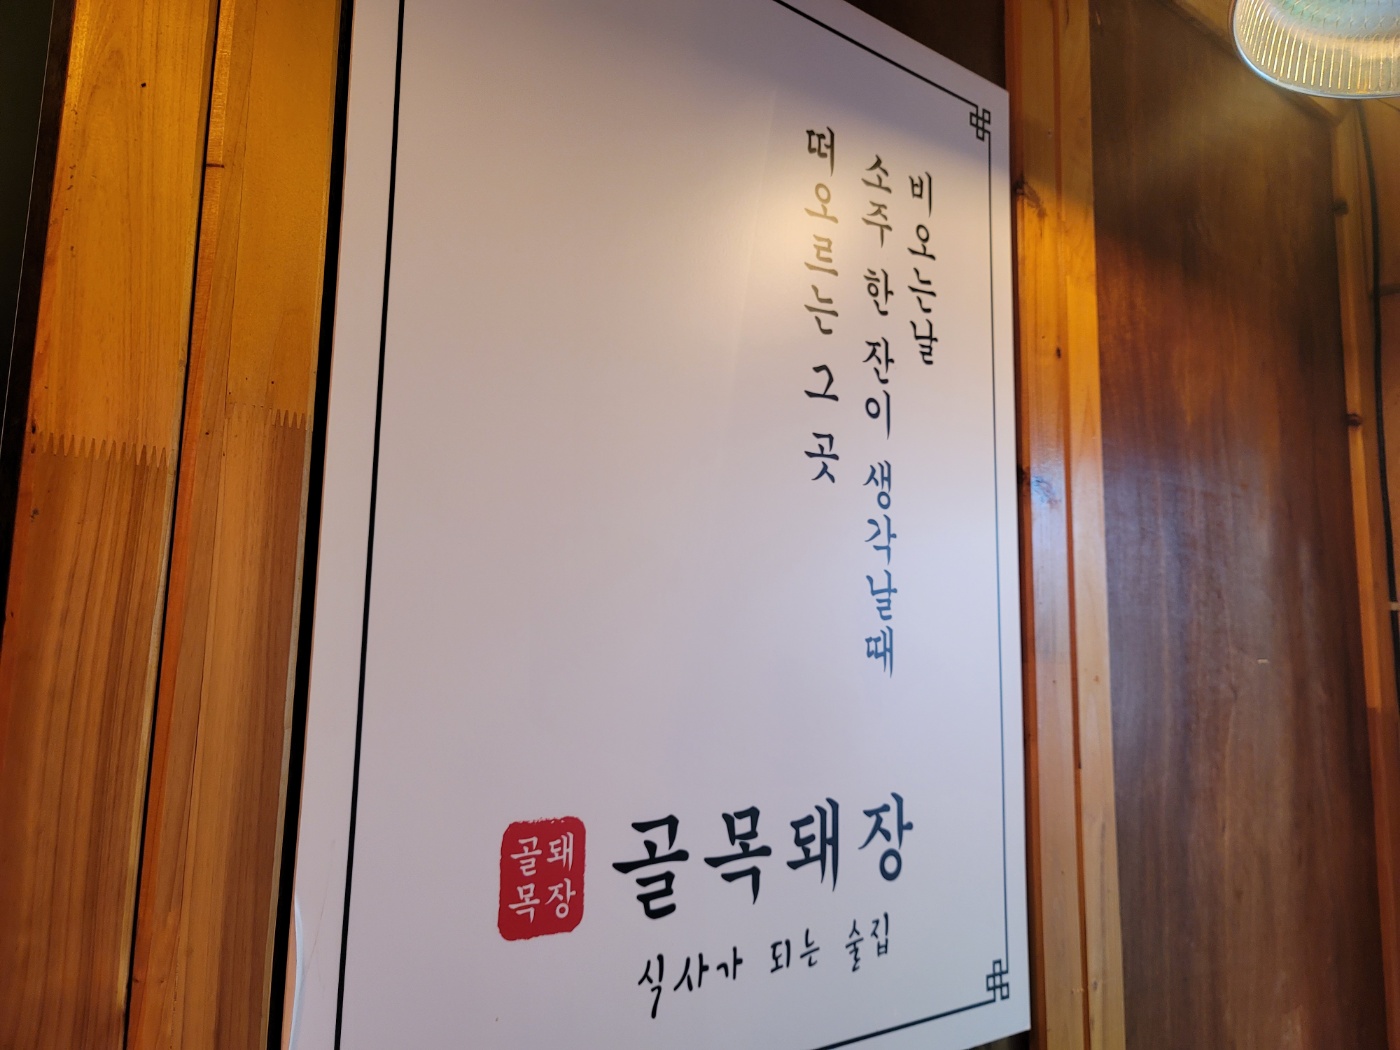 비오는날
소주 한 잔이 생각날때
떠오르는 그 곳
골돼
목장
골목돼장
식사가 되는 술집